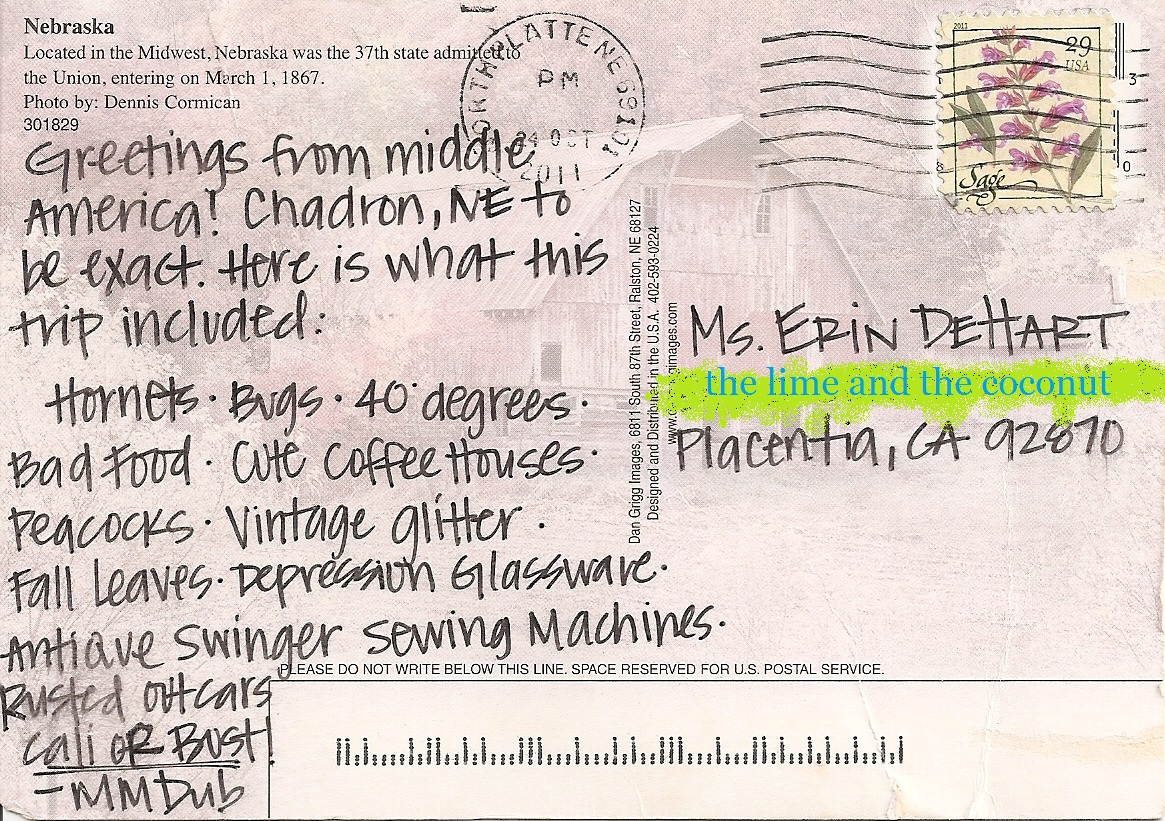 Nebraska
Located in the Midwest, Nebraska was the 37th state admitted to
the Union, entering on March 1, 1867.
Photo by: Dennis Cormican
301829
NORTH PLATTE NE 69101
PM
24 OCT
2011
2011
29
USA
Sage
Greetings from middle
America! Chadron, NE to
be exact. Here is what this
trip included:
Hornets · Bugs · 40° degrees ·
Bad Food · Cute Coffee Houses ·
Peacocks · Vintage glitter ·
Fall Leaves · Depression Glassware ·
Antique Swinger Sewing Machines ·
Rusted out cars
Cali OR Bust!
- MMDub
Dan Grigg Images, 6811 South 87th Street, Ralston, NE 68127
Designed and Distributed in the U.S.A. 402-593-0224
Ms. ERIN DEHART
the lime and the coconut
Placentia, CA 92870
PLEASE DO NOT WRITE BELOW THIS LINE. SPACE RESERVED FOR U.S. POSTAL SERVICE.